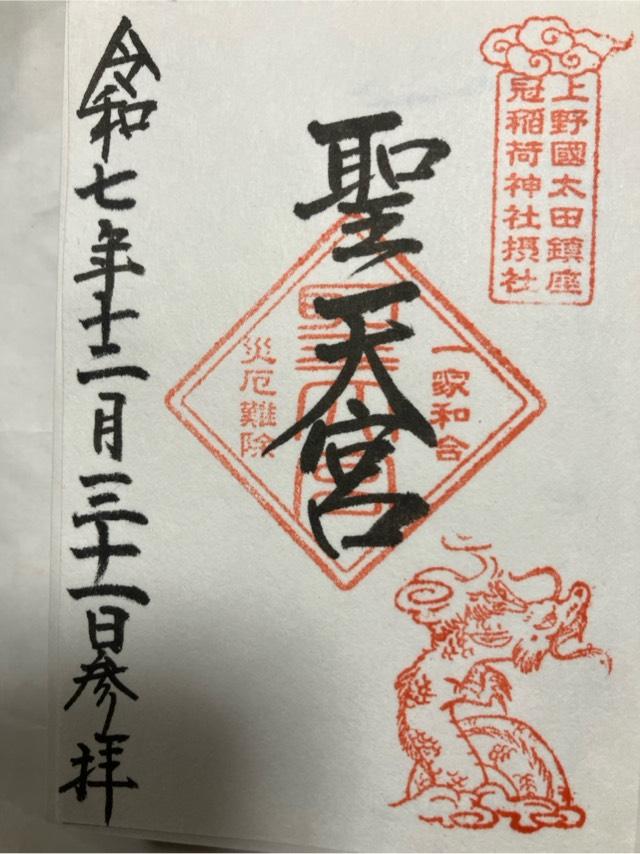 上野國太田鎮座
冠稲荷神社摂社
聖天宮
一家和合
災厄難除
令和七年十二月三十一日参拝